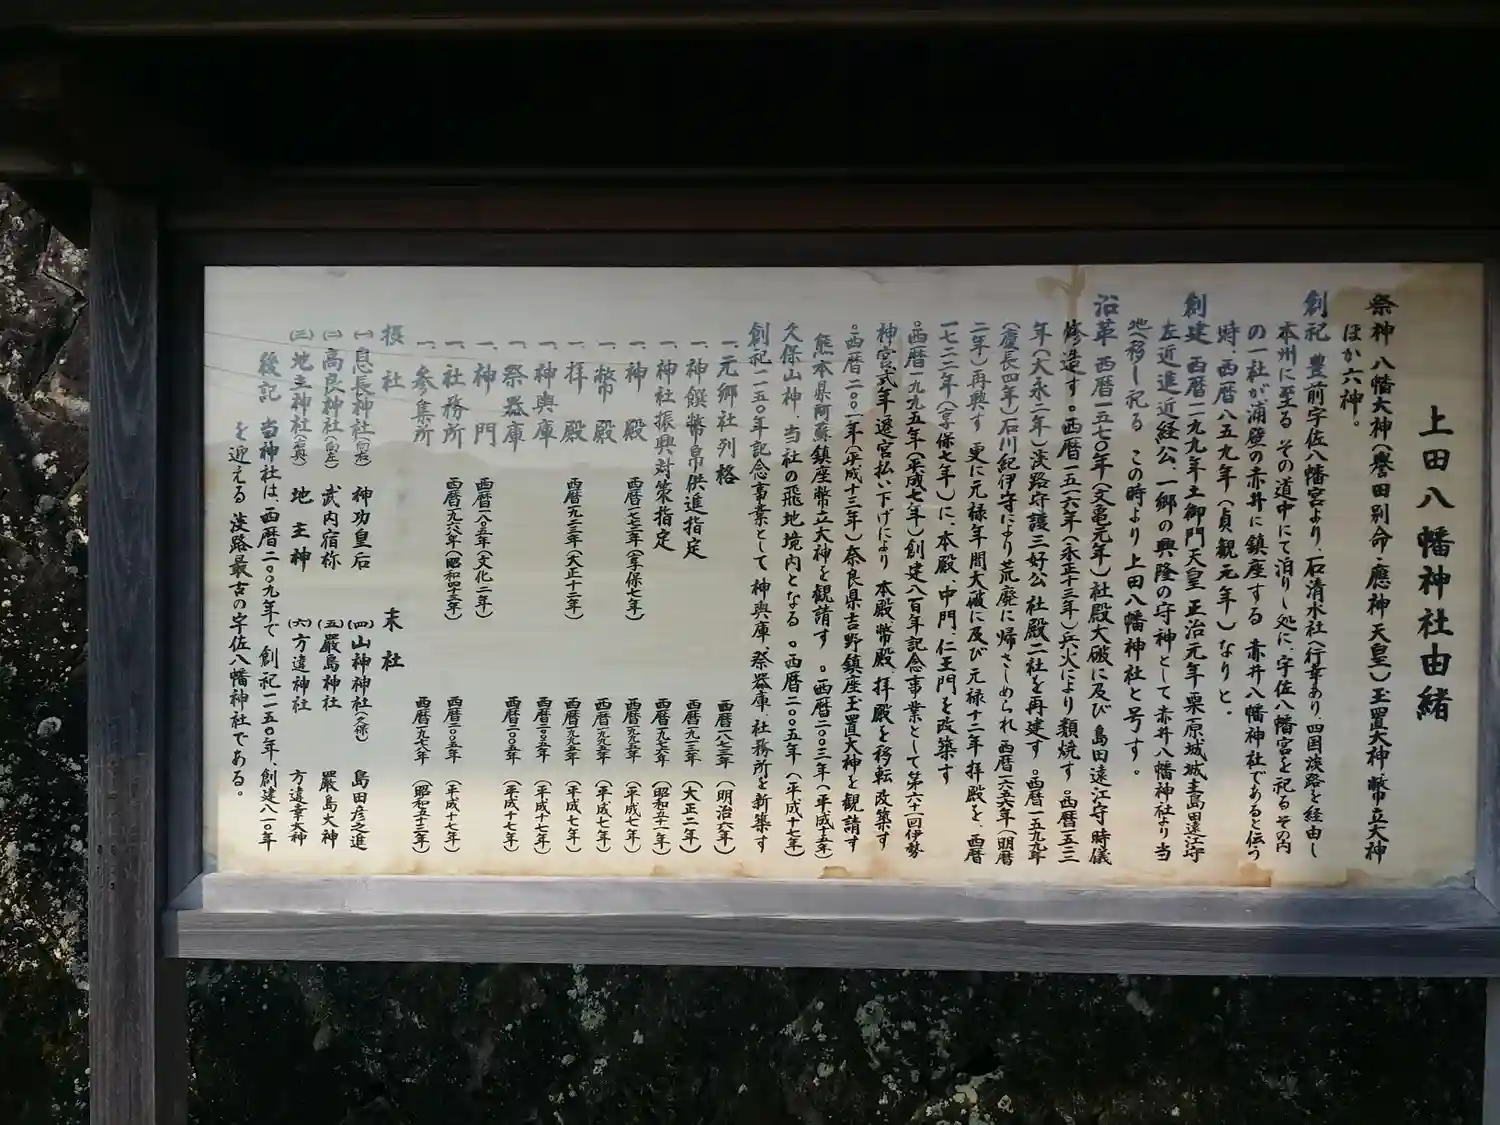 上田八幡神社由緒
祭神 八幡大神(譽田別命・應神天皇)玉置大神・幣立大神
ほか六神。
創祀 豊前宇佐八幡宮より、石清水社へ行幸あり、四国淡路を経由し
本州に至る その道中にて泊りし処に、宇佐八幡宮を祀る その内
の一社が浦壁の赤井に鎮座する 赤井八幡神社であると伝う
時、西暦八五九年(貞観元年)なりと.
創建 西暦一一九九年土御門天皇 正治元年 栗原城城主島田遠江守
左近進近経公、一郷の興隆の守神として赤井八幡神社より当
地へ移し祀る この時より上田八幡神社と号す。
沿革 西暦一五七〇年(文亀元年)社殿大破に及び 島田遠江守時儀
修造す。西暦一五一六年(永正十三年)兵火により類焼す。西暦一五二三
年(大永二年)淡路守護三好公 社殿二社を再建す。西暦一五九九年
(慶長四年)石川紀伊守により荒廃に帰さしめられ 西暦一六五六年(明暦
二年)再興す 更に元禄年間大破に及び 元禄十二年拝殿を、西暦
一七二二年(享保七年)に、本殿、中門、仁王門を改築す
。西暦一九九五年(平成七年)創建八百年記念事業として第六十一回伊勢
神宮式年遷宮払い下げにより 本殿 幣殿 拝殿を移転 改築す
。西暦二〇〇一年(平成十三年)奈良県吉野鎮座玉置大神を観請す
熊本県阿蘇鎮座幣立大神を観請す 。西暦二〇〇三年(平成十五年)
久保山神、当社の飛地境内となる。西暦二〇〇五年(平成十七年)
創祀一一五〇年記念事業として 神輿庫、祭器庫、社務所を新築す
一、元郷社列格 西暦一八七三年(明治六年)
一、神饌幣帛供進指定 西暦一九一三年(大正二年)
一、神社振興対策指定 西暦一九七六年(昭和五十一年)
一、神殿 西暦一七二二年(享保七年) 西暦一九九五年(平成七年)
一、幣殿 西暦一九九五年(平成七年)
一、拝殿 西暦一九二三年(大正十二年) 西暦一九九五年(平成七年)
一、神輿庫 西暦二〇〇五年(平成十七年)
一、祭器庫 西暦二〇〇五年(平成十七年)
一、神門 西暦一八〇五年(文化二年)
一、社務所 西暦一九六八年(昭和四十三年) 西暦二〇〇五年(平成十七年)
一、参集所 西暦一九七八年(昭和五十三年)
摂社 末社
(一)息長神社 神功皇后 (四)山神神社(久保) 島田彦之進
(二)高良神社 武内宿祢 (五)嚴島神社 嚴島大神
(三)地主神社 地主神 (六)方違神社 方違幸大神
後記 当神社は、西暦二〇〇九年で 創祀一一五〇年、創建八一〇年
を迎える 淡路最古の宇佐八幡神社である。